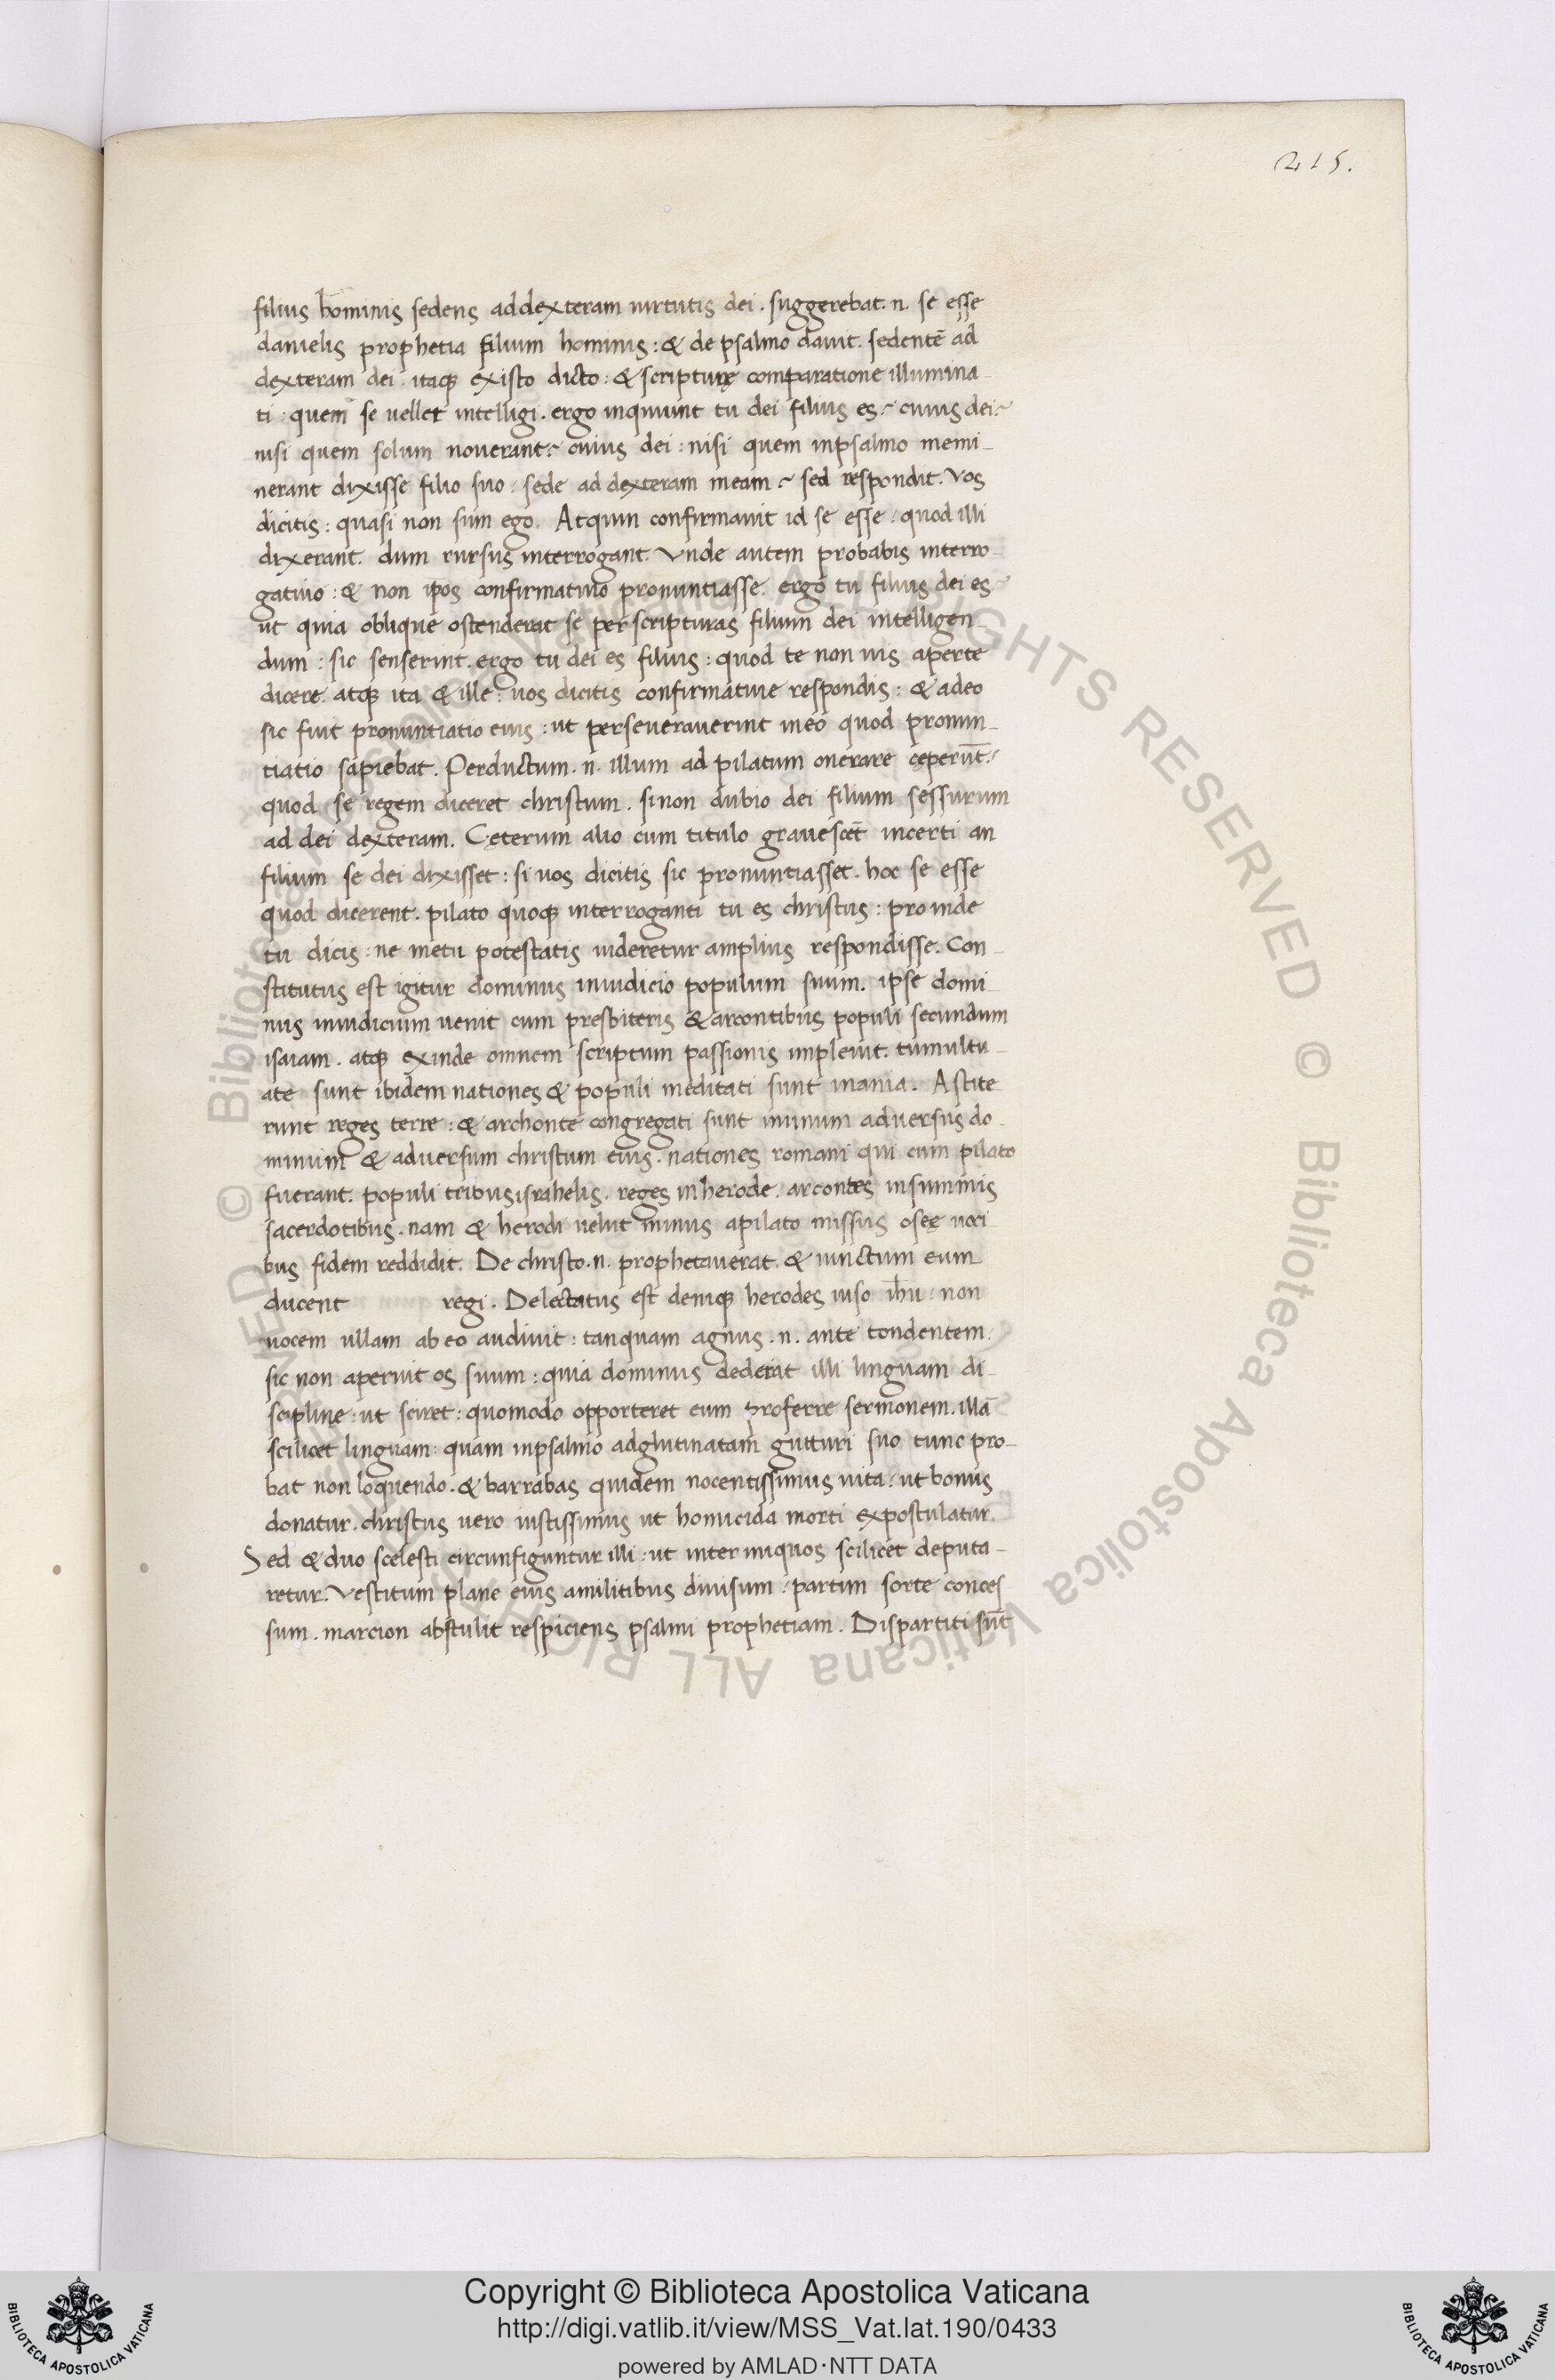 215.
filius hominis sedens addexteram uirtutis dei. suggerebat. n. se esse
danielis prophetia filium hominis: & de psalmo dauit. sedentē ad
dexteram dei. itaqꝫ existo dicto: & scripturę comparatione illumina-
ti: quem se uellet intelligi. ergo inquiunt tu dei filius es? cuius dei?
nisi quem solum nouerant? cuius dei: nisi quem inpsalmo memi-
nerant dixisse filio suo: sede ad dexteram meam? sed respondit. Vos
dicitis: quasi non sum ego. Atquin confirmauit id se esse: quod illi
dixerant. dum rursus interrogant. Vnde autem probabis interro-
gatiuo: & non ipos confirmatiuo pronuntiasse. ergo tu filius dei es?
ut quia oblique ostenderat se per scripturas filium dei intelligen-
dum: sic senserint. ergo tu dei es filius: quod te non uis aperte
dicere. atqꝫ ita & ille: uos dicitis confirmatiue respondis: & adeo
sic fuit pronuntiatio eius: ut perseuerauerint ineo quod pronun-
tiatio sapiebat. Perductum. n. illum ad pilatum onerare cęperūt:
quod se regem diceret christum. sinon dubio dei filium sessurum
ad dei dexteram. Cęterum alio cum titulo grauescēt incerti an
filium se dei dixisset: si uos dicitis sic pronuntiasset. hoc se esse
quod dicerent. pilato quoqꝫ interroganti tu es christus: proinde
tu dicis: ne metu potestatis uideretur amplius respondisse. Con-
stitutus est igitur dominus iniudicio populum suum. ipse domi-
nus iniudicium uenit cum presbiteris & arcontibus populi secundum
isaiam. atqꝫ exinde omnem scriptum passionis impleuit. tumultu-
ate sunt ibidem nationes & populi meditati sunt inania. Astite-
runt reges terre: & archonte congregati sunt inunum aduersus do-
minum & aduersum christum eius. nationes romani qui cum pilato
fuerant. populi tribus israhelis. reges inherode. arcontes insummis
sacerdotibus. nam & herodi uelut munus apilato missus oseę uoci-
bus fidem reddidit. De christo. n. prophetauerat. & uinctum eum
ducent regi. Delectatus est deniqꝫ herodes uiso ihu: non
uocem ullam ab eo audiuit: tanquam agnus. n. ante tondentem:
sic non aperuit os suum: quia dominus dederat illi linguam di-
sciplinę: ut sciret: quomodo opporteret eum proferre sermonem. illā
scilicet linguam: quam inpsalmo adglutinatam gutturi suo tunc pro-
bat non loquendo. & barrabas quidem nocentissimus uita: ut bonus
donatur. christus uero iustissimus ut homicida morti expostulatur.
Sed & duo scelesti circunfiguntur illi: ut inter iniquos scilicet deputa-
retur. Vestitum plane eius amilitibus diuisum: partim sorte conces-
sum. marcion abstulit respiciens psalmi prophetiam. Dispartiti sūt
© Biblioteca Apostolica Vaticana ALL RIGHTS RESERVED © Biblioteca Apostolica Vaticana ALL RIGHTS RESERVED
Copyright © Biblioteca Apostolica Vaticana
http://digi.vatlib.it/view/MSS_Vat.lat.190/0433
powered by AMLAD·NTT DATA
BIBLIOTECA APOSTOLICA VATICANA
BIBLIOTECA APOSTOLICA VATICANA